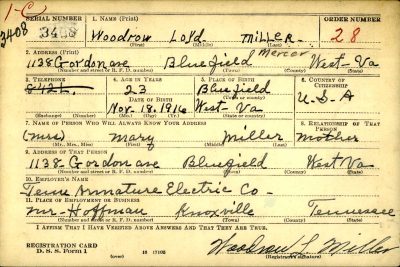 1-C
SERIAL NUMBER 1. NAME (Print) ORDER NUMBER
3408 3408 Woodrow Loyd Miller 28
(First) (Middle) (Last)
2. ADDRESS (Print) Mercer
1138 Gordon ave Bluefield West-Va
(Number and street or R. F. D. number) (Town) (County) (State)
3. TELEPHONE 4. AGE IN YEARS 5. PLACE OF BIRTH 6. COUNTRY OF CITIZENSHIP
23 Bluefield
(Town)
DATE OF BIRTH
Nov. 18. 1916 West-Va U-S-A
(Exchange) (Number) (Mo.) (Day) (Yr.) (State or country)
7. NAME OF PERSON WHO WILL ALWAYS KNOW YOUR ADDRESS 8. RELATIONSHIP OF THAT PERSON
(Mrs) Mary Miller Mother
(Mr., Mrs., Miss) (First) (Middle) (Last)
9. ADDRESS OF THAT PERSON
1138-Gordon ave Bluefield West Va
(Number and street or R. F. D. number) (Town) (County) (State)
10. EMPLOYER'S NAME
Tenn Armature Electric Co-
11. PLACE OF EMPLOYMENT OR BUSINESS
Mr-Hoffman Knoxville Tennessee
(Number and street or R. F. D. number) (Town) (County) (State)
I AFFIRM THAT I HAVE VERIFIED ABOVE ANSWERS AND THAT THEY ARE TRUE.
REGISTRATION CARD
D. S. S. Form 1 16 17105 Woodrow L Miller
(Registrant's signature)